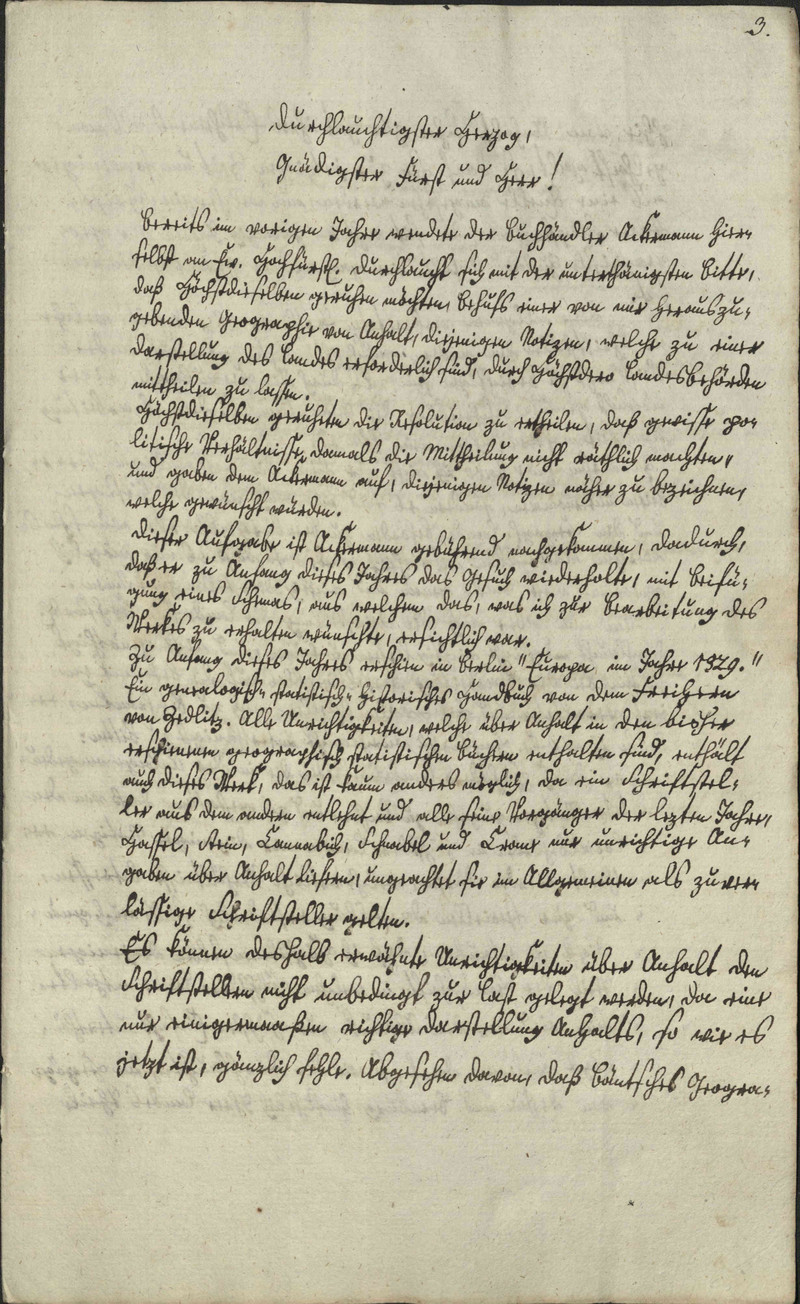 3.
Durchlauchtigster Herzog,
Gnädigster Fürst und Herr!
Bereits im vorigen Jahre wendete der Buchhändler Ackermann hier-
selbst an Ew. Hochfürstl. Durchlaucht sich mit der unterthänigsten Bitte,
daß Höchstdieselben geruhen möchten, behufs einer von mir herauszu-
gebenden Geographie von Anhalt, diejenigen Notizen, welche zu einer
Darstellung des Landes erforderlich sind, durch Höchstdero Landesbehörden
mittheilen zu lassen.
Höchstdieselben geruheten die Resolution zu ertheilen, daß gewisse po-
litische Verhältnisse damals die Mittheilung nicht räthlich machten,
und gaben dem Ackermann auf, diejenigen Notizen näher zu bezeichnen,
welche gewünscht würden.
Dieser Aufgabe ist Ackermann gebührend nachgekommen, dadurch,
daß er zu Anfang dieses Jahres das Gesuch wiederholte, mit Beifü-
gung eines Schemas, aus welchem das, was ich zur Bearbeitung des
Werkes zu erhalten wünschte, ersichtlich war.
Zu Anfang dieses Jahres erschien in Berlin "Europa im Jahre 1829."
Ein genealogisch-statistisch-historisches Handbuch von dem Freiherrn
von Zedlitz. Alle Unrichtigkeiten, welche über Anhalt in den bisher
erschienenen geographisch statistischen Büchern enthalten sind, enthält
auch dieses Werk, das ist kaum anders möglich, da ein Schriftstel-
ler aus dem andern entlehnt und alle seine Vorgänger der lezten Jahre,
Hassel, Stein, Cannabich, Schnabel und Crome nur unrichtige An-
gaben über Anhalt liefern, ungeachtet sie im Allgemeinen als zuver-
lässige Schriftsteller gelten.
Es können deshalb erwähnte Unrichtigkeiten über Anhalt den
Schriftstellern nicht unbedingt zur Last gelegt werden, da eine
nur einigermaaßen richtige Darstellung Anhalts, so wie es
jetzt ist, gänzlich fehlt. Abgesehen davon, daß Bäntsches Geogra-